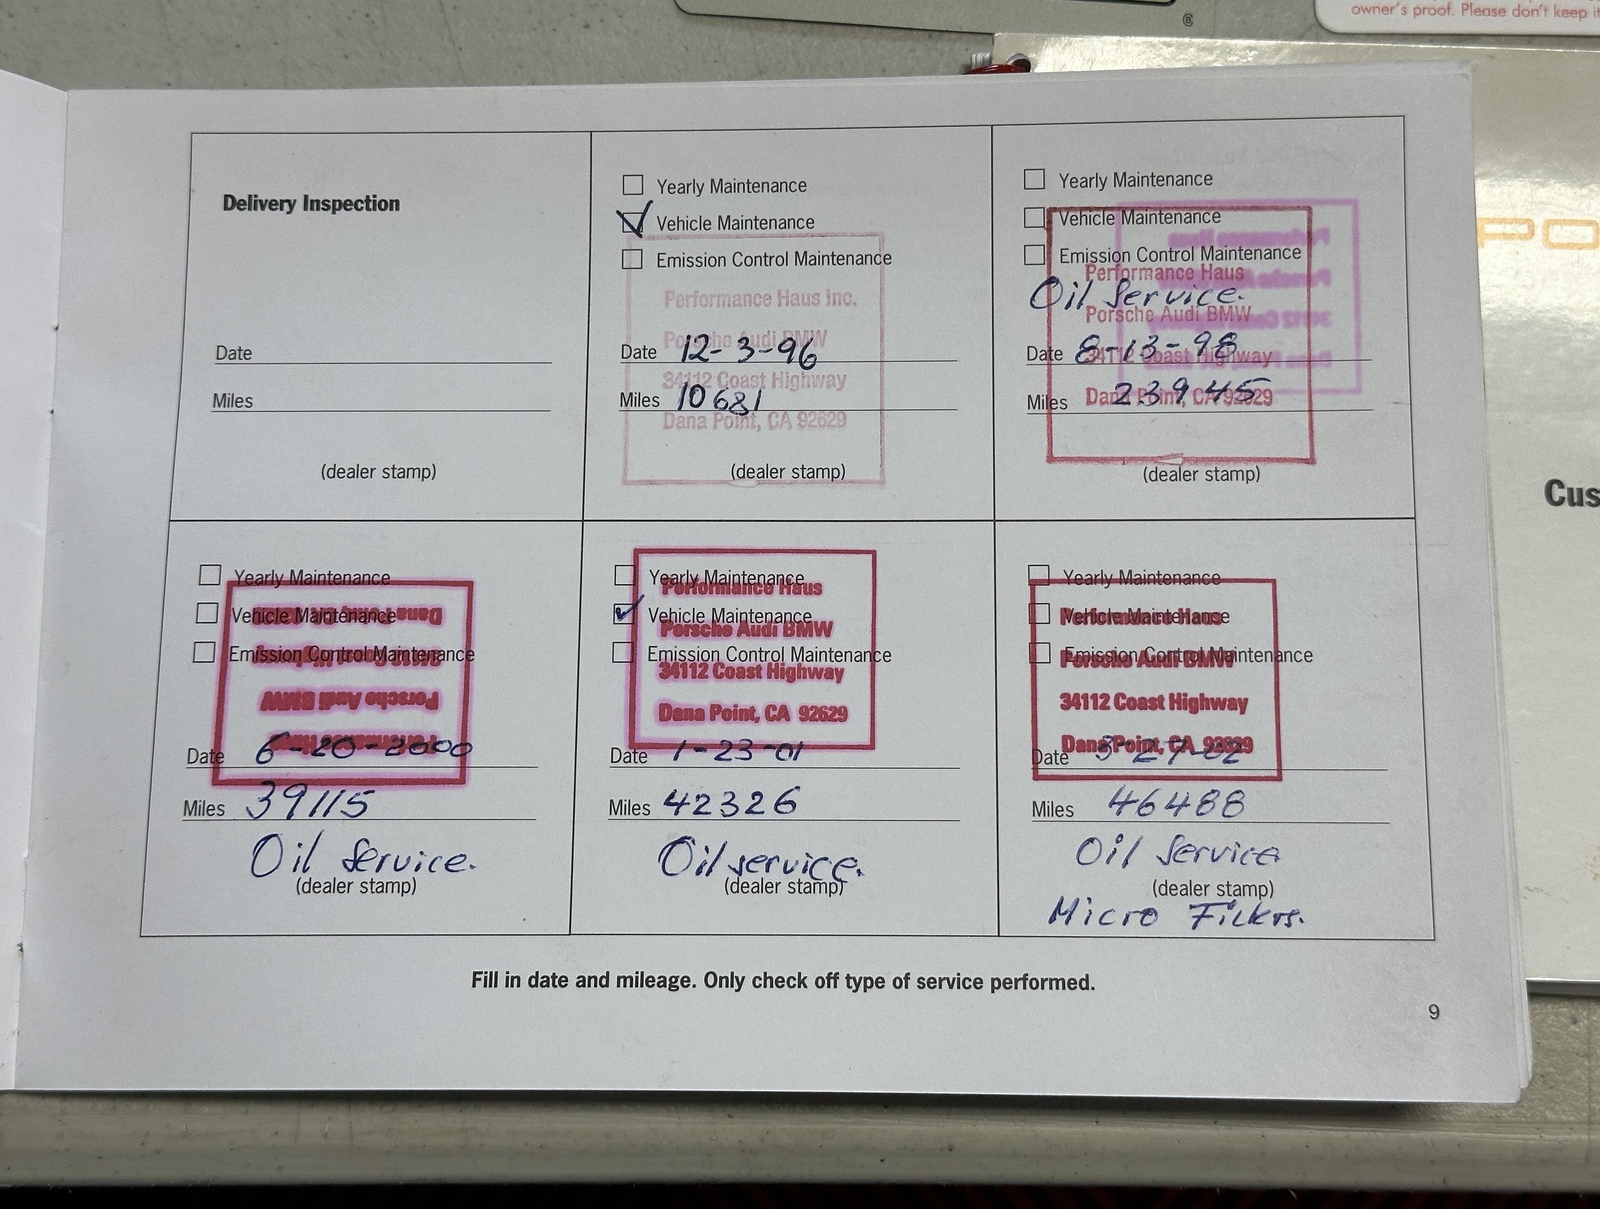 ®
owner's proof. Please don't keep it
PO
Cus
Delivery Inspection
Date
Miles
(dealer stamp)
Yearly Maintenance
Vehicle Maintenance
Emission Control Maintenance
Performance Haus Inc.
Porsche Audi BMW
Date 12-3-96
34112 Coast Highway
Miles 10681
Dana Point, CA 92629
(dealer stamp)
Yearly Maintenance
Vehicle Maintenance
Emission Control Maintenance
Performance Haus
Oil Service.
Porsche Audi BMW
Date 8-13-98
34112 Coast Highway
Miles 23945
Dana Point, CA 92629
(dealer stamp)
Performance Haus
Porsche Audi BMW
34112 Coast Highway
Dana Point,
Yearly Maintenance
Vehicle Maintenance
Emission Control Maintenance
Dana Point,
Porsche Audi BMW
Performance Haus
Date 6-20-2000
Miles 39115
Oil Service.
(dealer stamp)
Yearly Maintenance
Performance Haus
Vehicle Maintenance
Porsche Audi BMW
Emission Control Maintenance
34112 Coast Highway
Dana Point, CA 92629
Date 1-23-01
Miles 42326
Oil service.
(dealer stamp)
Yearly Maintenance
Vehicle Maintenance
Performance Haus
Emission Control Maintenance
Porsche Audi BMW
34112 Coast Highway
Dana Point, CA 92629
Date 3-27-02
Miles 46488
Oil Service
(dealer stamp)
Micro Filters.
Fill in date and mileage. Only check off type of service performed.
9